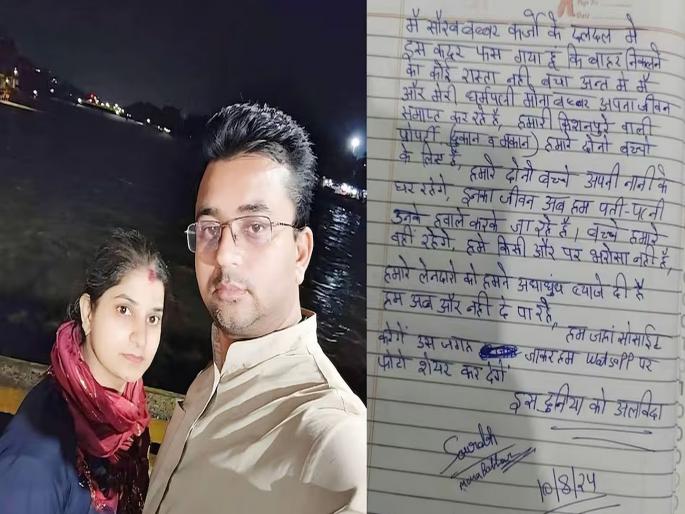 मैं सौरव बब्बर कर्जो के दलदल मे
इस कदर फस गया हूं कि बाहर निकलने
का कोई रास्ता नही बचा अन्त मे मैं
और मेरी धर्मपत्नी मोना बब्बर अपना जीवन
समाप्त कर रहे है, हमारी किशनपुरे वाली
प्रोपर्टी (दुकान व मकान) हमारे दोनो बच्चो
के लिए है, हमारे दोनो बच्चे अपनी नानी के
घर रहेंगे, इनका जीवन अब हम पती-पत्नी
उनके हवाले करके जा रहे है। बच्चे हमारे
वही रहेंगे, हमे किसी और पर भरोसा नही है,
हमारे लेनदारो को हमने अंधाधुंध ब्याजे दी है
हम अब और नही दे पा रहे, हम जहां सोसाईट
करेगें उस जगह जाकर हम whatsapp पर
फोटो शेयर कर देगें
इस दुनिया को अलविदा
Saurabh
Mona Babbar
10/8/24